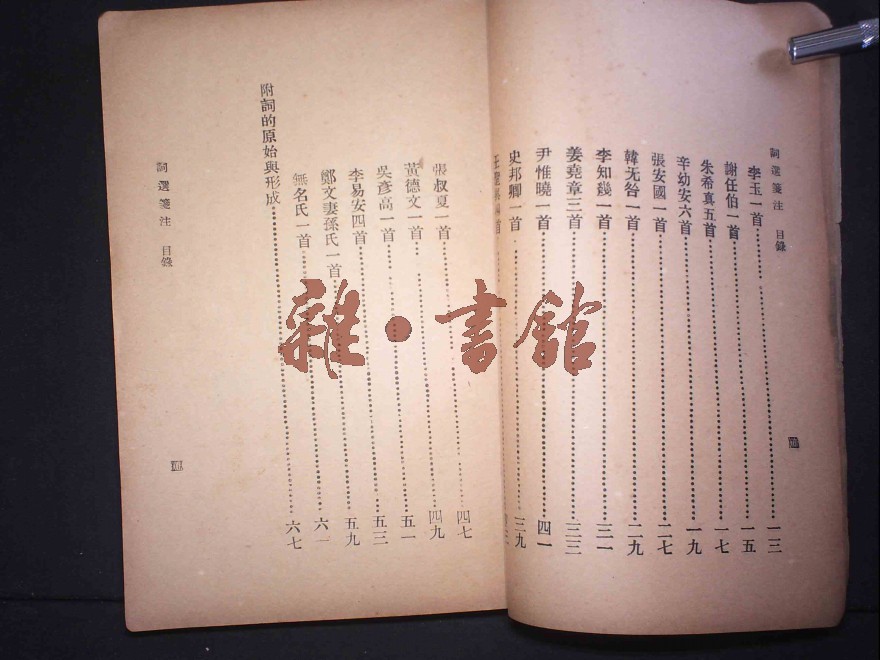 詞選箋注 目錄
李玉一首……一三
謝任伯一首……一五
朱希真五首……一七
辛幼安六首……一九
張安國一首……二七
韓无咎一首……二九
李知幾一首……三一
姜堯章三首……三三
尹惟曉一首……四一
史邦卿一首……三九
張叔夏一首……四七
黃德文一首……四九
吳彥高一首……五一
李易安四首……五三
鄭文妻孫氏一首……五九
無名氏一首……六一
附詞的原始與形成……六七
詞選箋注 目錄
雜·書館